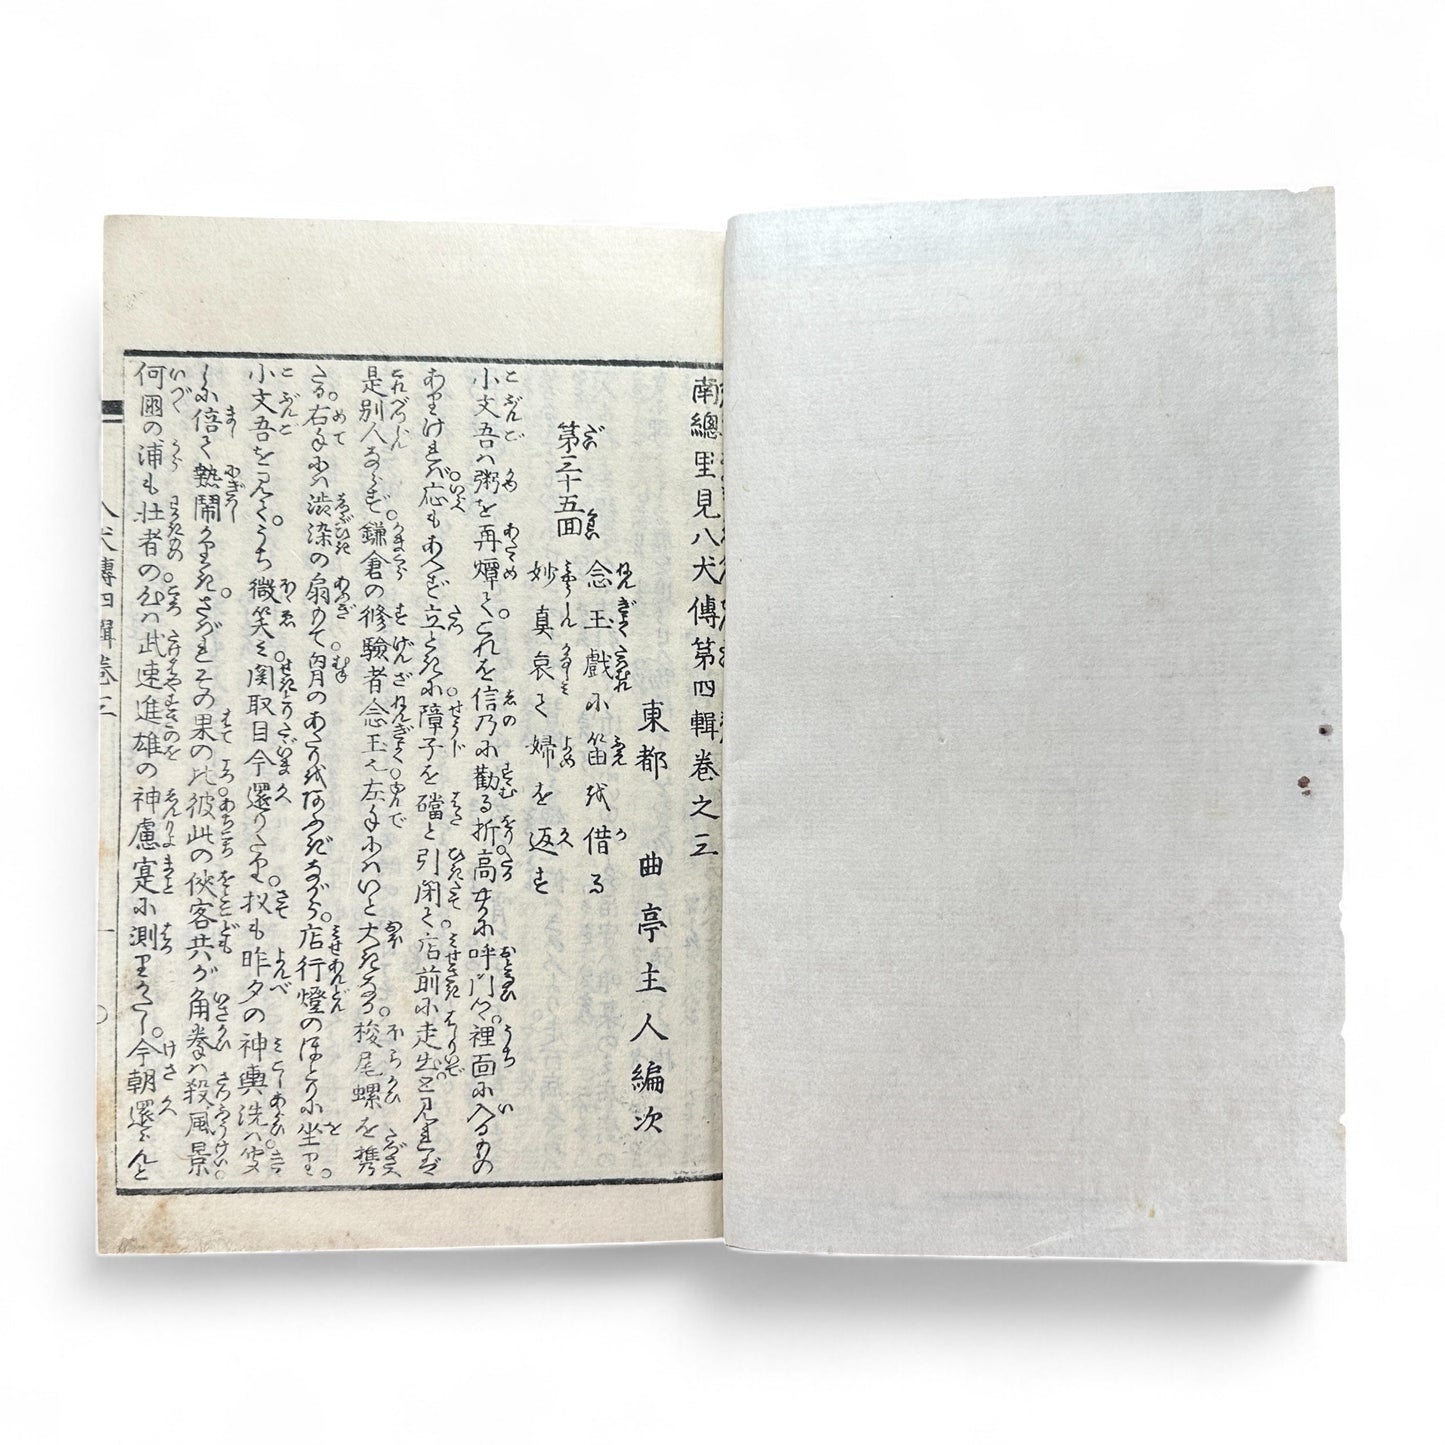 南總里見八犬傳第四輯巻之三
東都 曲亭主人編次
第三十五回 念玉戯に笛を借る
妙真哀て婦を返す
小文吾ハ粥を再燂てこれを信乃に勧る折高やかに呼門つゝ裡面に入るもの
ありけれバ応もあへず立ときに障子を礑と引開て店前に走出て見れば
是別人ならず鎌倉の修験者念玉也左手にハいと大きなる梭尾螺を携
たる右手にハ渋染の扇もて胷のあたりをあふぎながら店行燈のほとりに坐り
小文吾を見てうち微笑み関取目今還りたり扨も昨夕の神輿洗ハ
しに倍て熱鬧かりきさばれその果の比彼此の侠客共が角拳ハ殺風景
何國の浦も壮者の心ハ武速進雄の神慮寔に測りがたし今朝還らんと
八犬傳四輯巻三